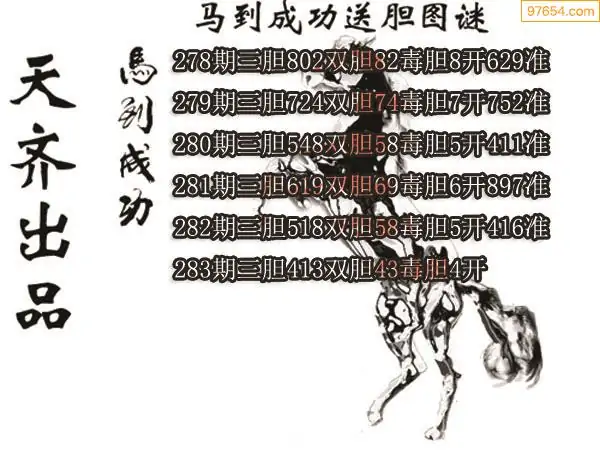 马到成功送胆图谜
97654.com
天齐出品
馬到成功
278期三胆802双胆82毒胆8开629准
279期三胆724双胆74毒胆7开752准
280期三胆548双胆58毒胆5开411准
281期三胆619双胆69毒胆6开897准
282期三胆518双胆58毒胆5开416准
283期三胆413双胆43毒胆4开